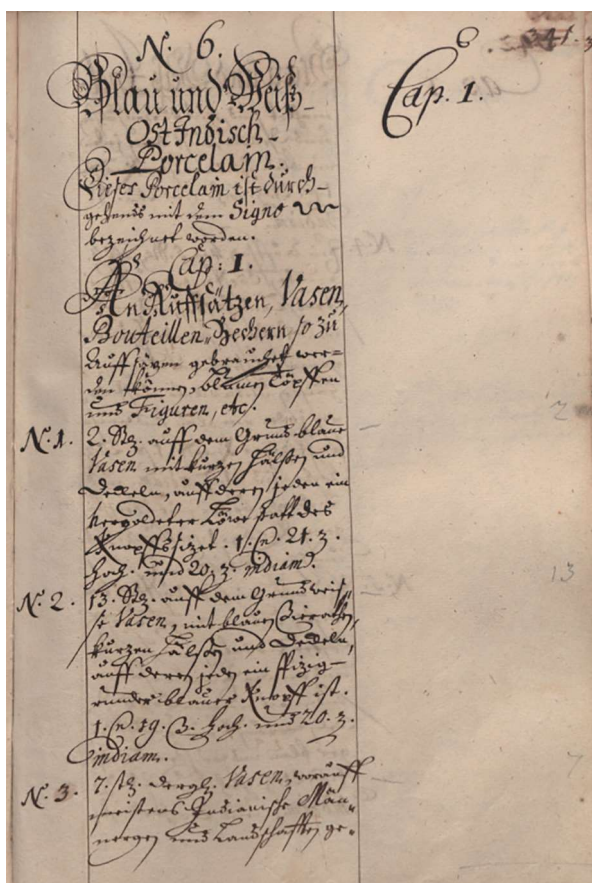 341.
N. 6.
Cap. 1.
Blau und Weiß-
OstIndisch-
Porcelain.
Dieses Porcelain ist durch-
gehends mit dem Signo
bezeichnet worden.
Cap: 1.
An Auffsätzen, Vasen,
Bouteillen, Bechern, so zu
Auffsäzen gebrauchet wer-
den können, blumen Töpffen
und Figuren, etc.
N. 1. 2. Stk. auff dem Grund blaue
Vasen mit kurzen Hälßen und
Deckeln, auff deren jeden ein
vergoldeter Löwe statt des
Knopffs sizet. 1. En. 21. z.
hoch. und 20. z. in diam.
2
N. 2. 13. Stk. auff dem Grund weis-
se Vasen, mit blauen Zierathen,
kurzen Hälßen und Deckeln,
auff deren jeden ein spizig-
runder blauer Knopff ist.
1. En. 19. z. hoch. und 20. z.
in diam.
13
N. 3. 7. stk. dergl. Vasen, worauff
meistens Indianische Män-
nergen und Landschafften ge-
7